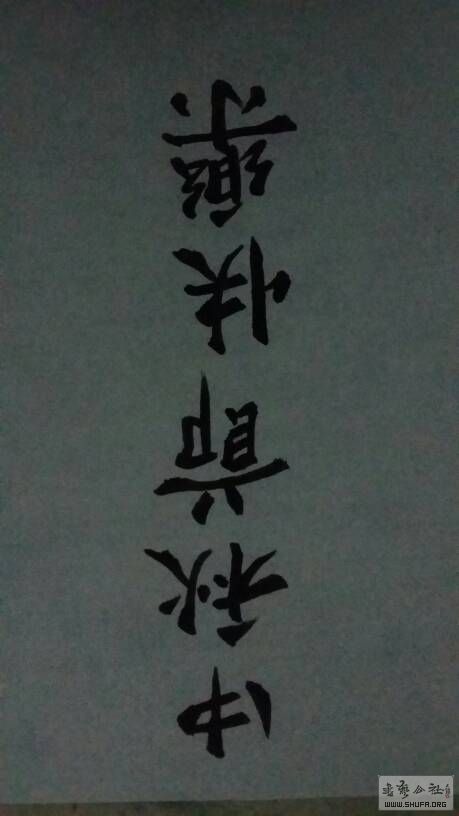 中秋節快樂
書藝公社
WWW.SHUFA.ORG